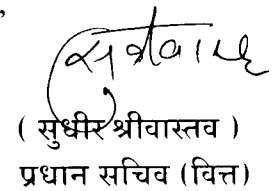 ( सुधीर श्रीवास्तव )
प्रधान सचिव (वित्त)